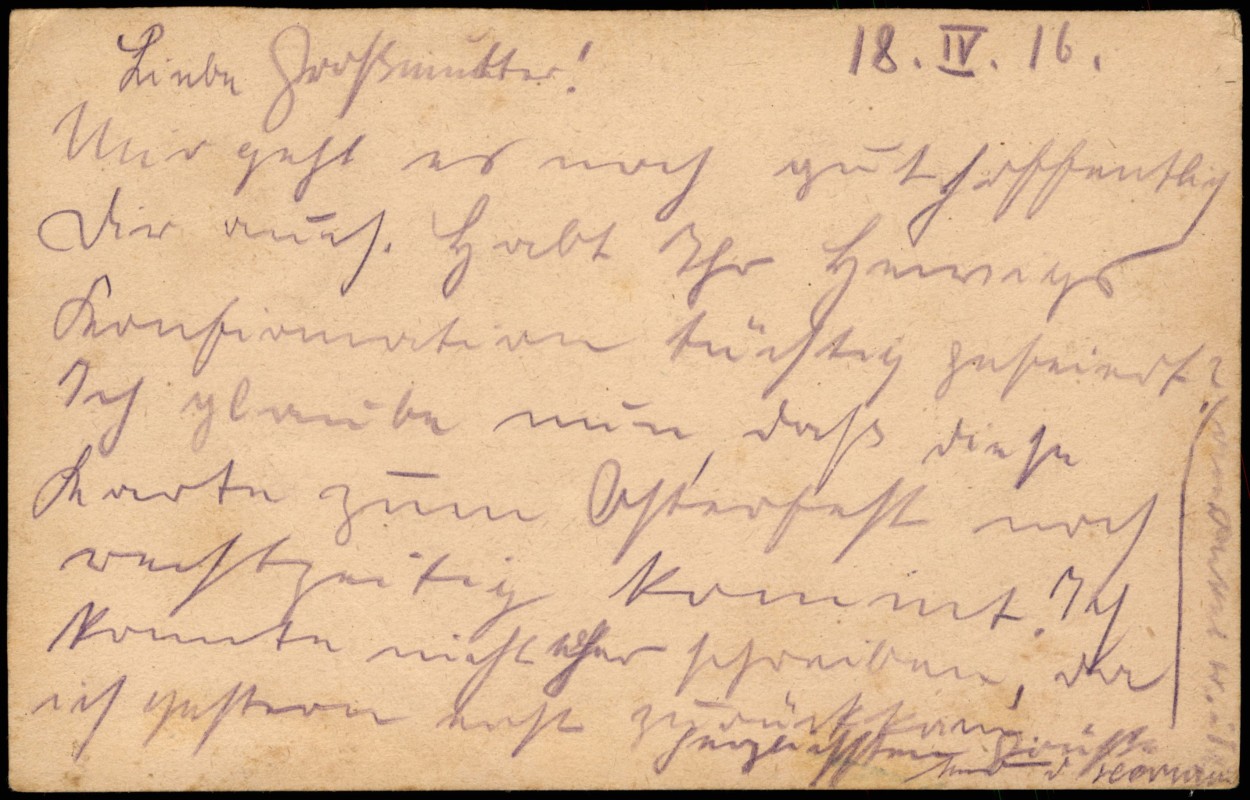 18.IV.16.
Liebe Großmutter!
Mir geht es noch gut hoffentlich
Dir auch. Habt Ihr Herwigs
Konfirmation tüchtig gefeiert?
Ich glaube nun, daß diese
Karte zum Osterfest noch
rechtzeitig kommt. Ich
konnte nicht eher schreiben, da
ich gestern erst zurückkam.
herzlichsten Grüße